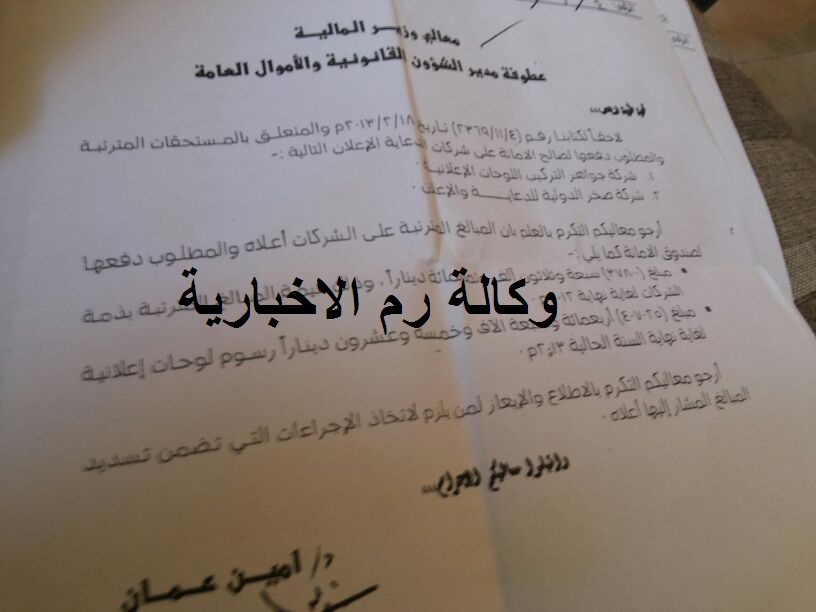 معالي وزير المالية
عطوفة مدير الشؤون القانونية والأموال العامة
لاحقاً لكتابنا رقم (٢٣٦٩/١١/٤) تاريخ ٢٠١٣/٢/١٨م والمتعلق بالمستحقات المترتبة
والمطلوب دفعها لصالح الامانة على شركات الدعاية الإعلان التالية :-
١. شركة جواهر التركيب اللوحات الإعلانية .
٢. شركة صخر الدولية للدعاية والإعلان
أرجو معاليكم التكرم بالعلم بان المبالغ المترتبة على الشركات أعلاه والمطلوب دفعها
لصندوق الامانة كما يلي :-
مبلغ (٣٧٨٠٠) سبعة وثلاثون ألف ديناراً . المترتبة بذمة
الشركات لغاية نهاية
وكالة رم الاخبارية
مبلغ (٤٠٧٠٢٥) أربعمائة وسبعة الآف وخمسة وعشرون ديناراً رسوم لوحات إعلانية
لغاية نهاية السنة الحالية ٢٠١٣م .
أرجو معاليكم التكرم بالاطلاع والإيعاز لمن يلزم لاتخاذ الإجراءات التي تضمن تسديد
المبالغ المشار إليها أعلاه .
واقبلوا فائق الاحترام،،،
د/ أمين عمان